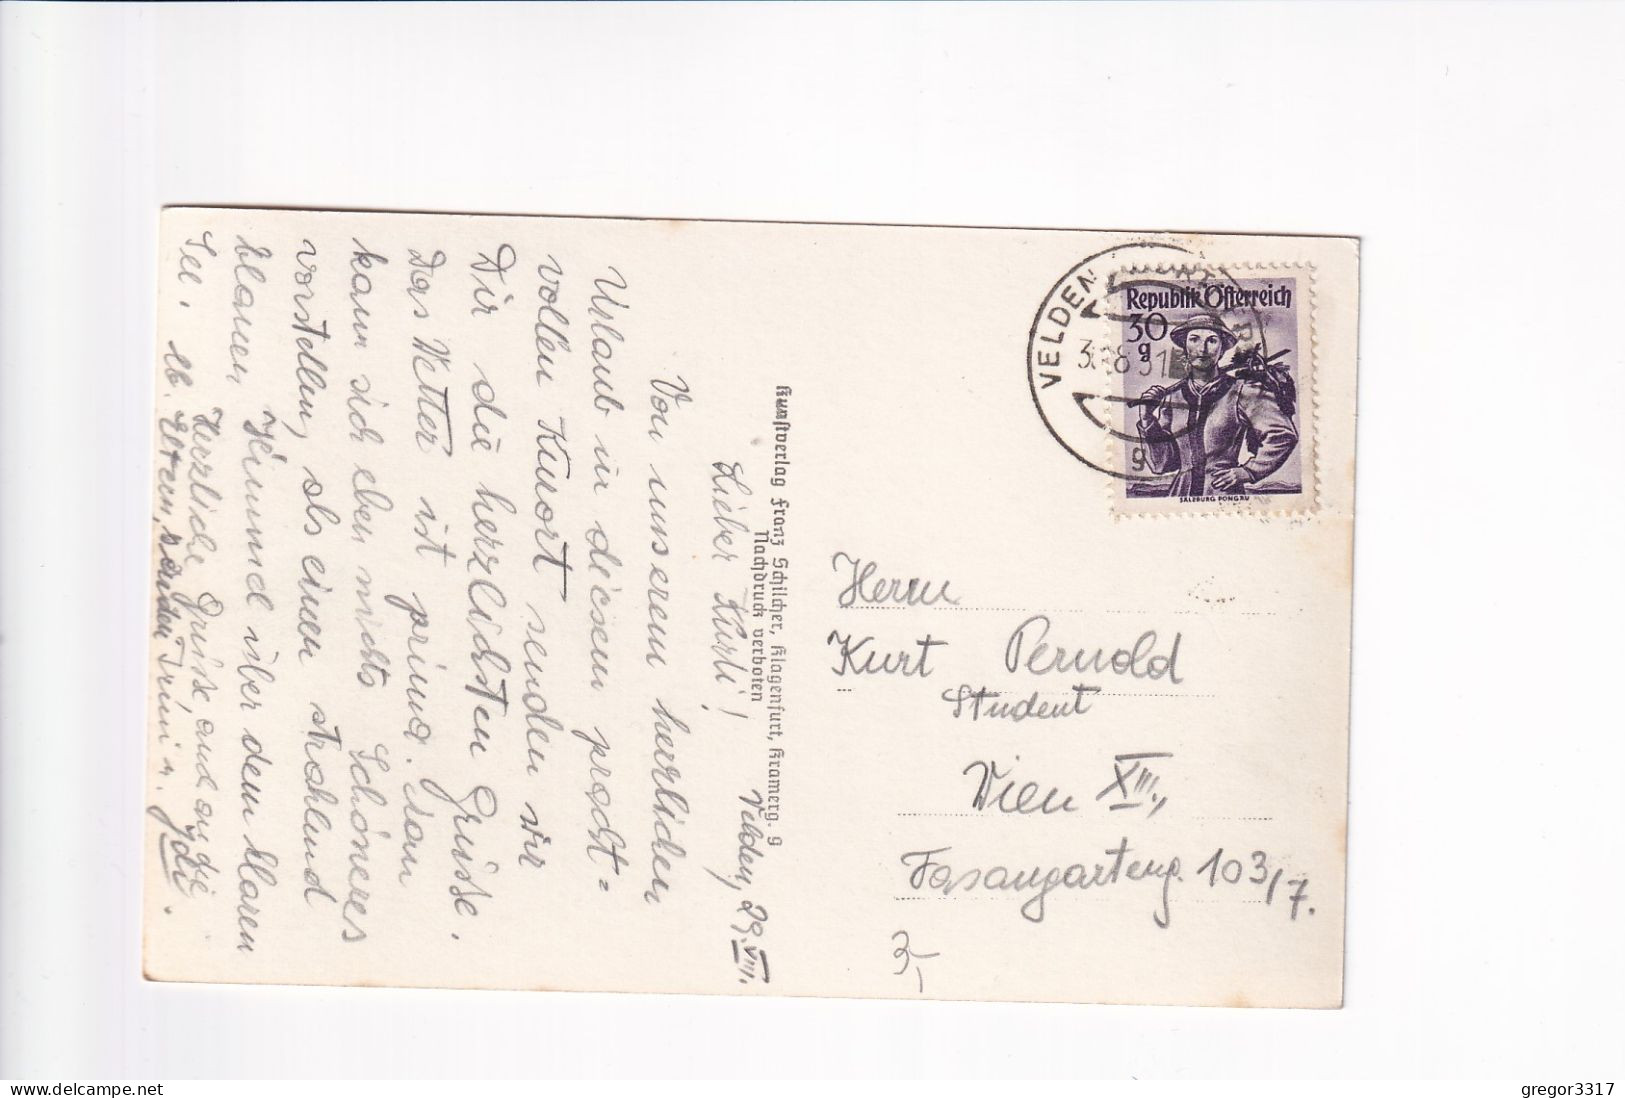 Velden, 29. VIII.
Lieber Kurti!
Von unserem herrlichen
Urlaub in diesem pracht=
vollen Kurort senden wir
Dir die herzlichsten Grüsse.
Das Wetter ist prima. Man
kann sich eben nichts Schöneres
vorstellen, als einen strahlend
blauen Himmel über dem klaren
See.
Herzliche Grüsse, auch an die
lb. Eltern, senden Trini u.
Kunstverlag Franz Schilcher, Klagenfurt, Kramerg. 9
Nachdruck verboten
VELDEN
g
Republik Österreich
30
g
SALZBURG PONGAU
Herrn
Kurt Pernold
Student
Wien XIII.,
Fasangarteng. 103/7.
3,-
delcampe.net
gregor3317